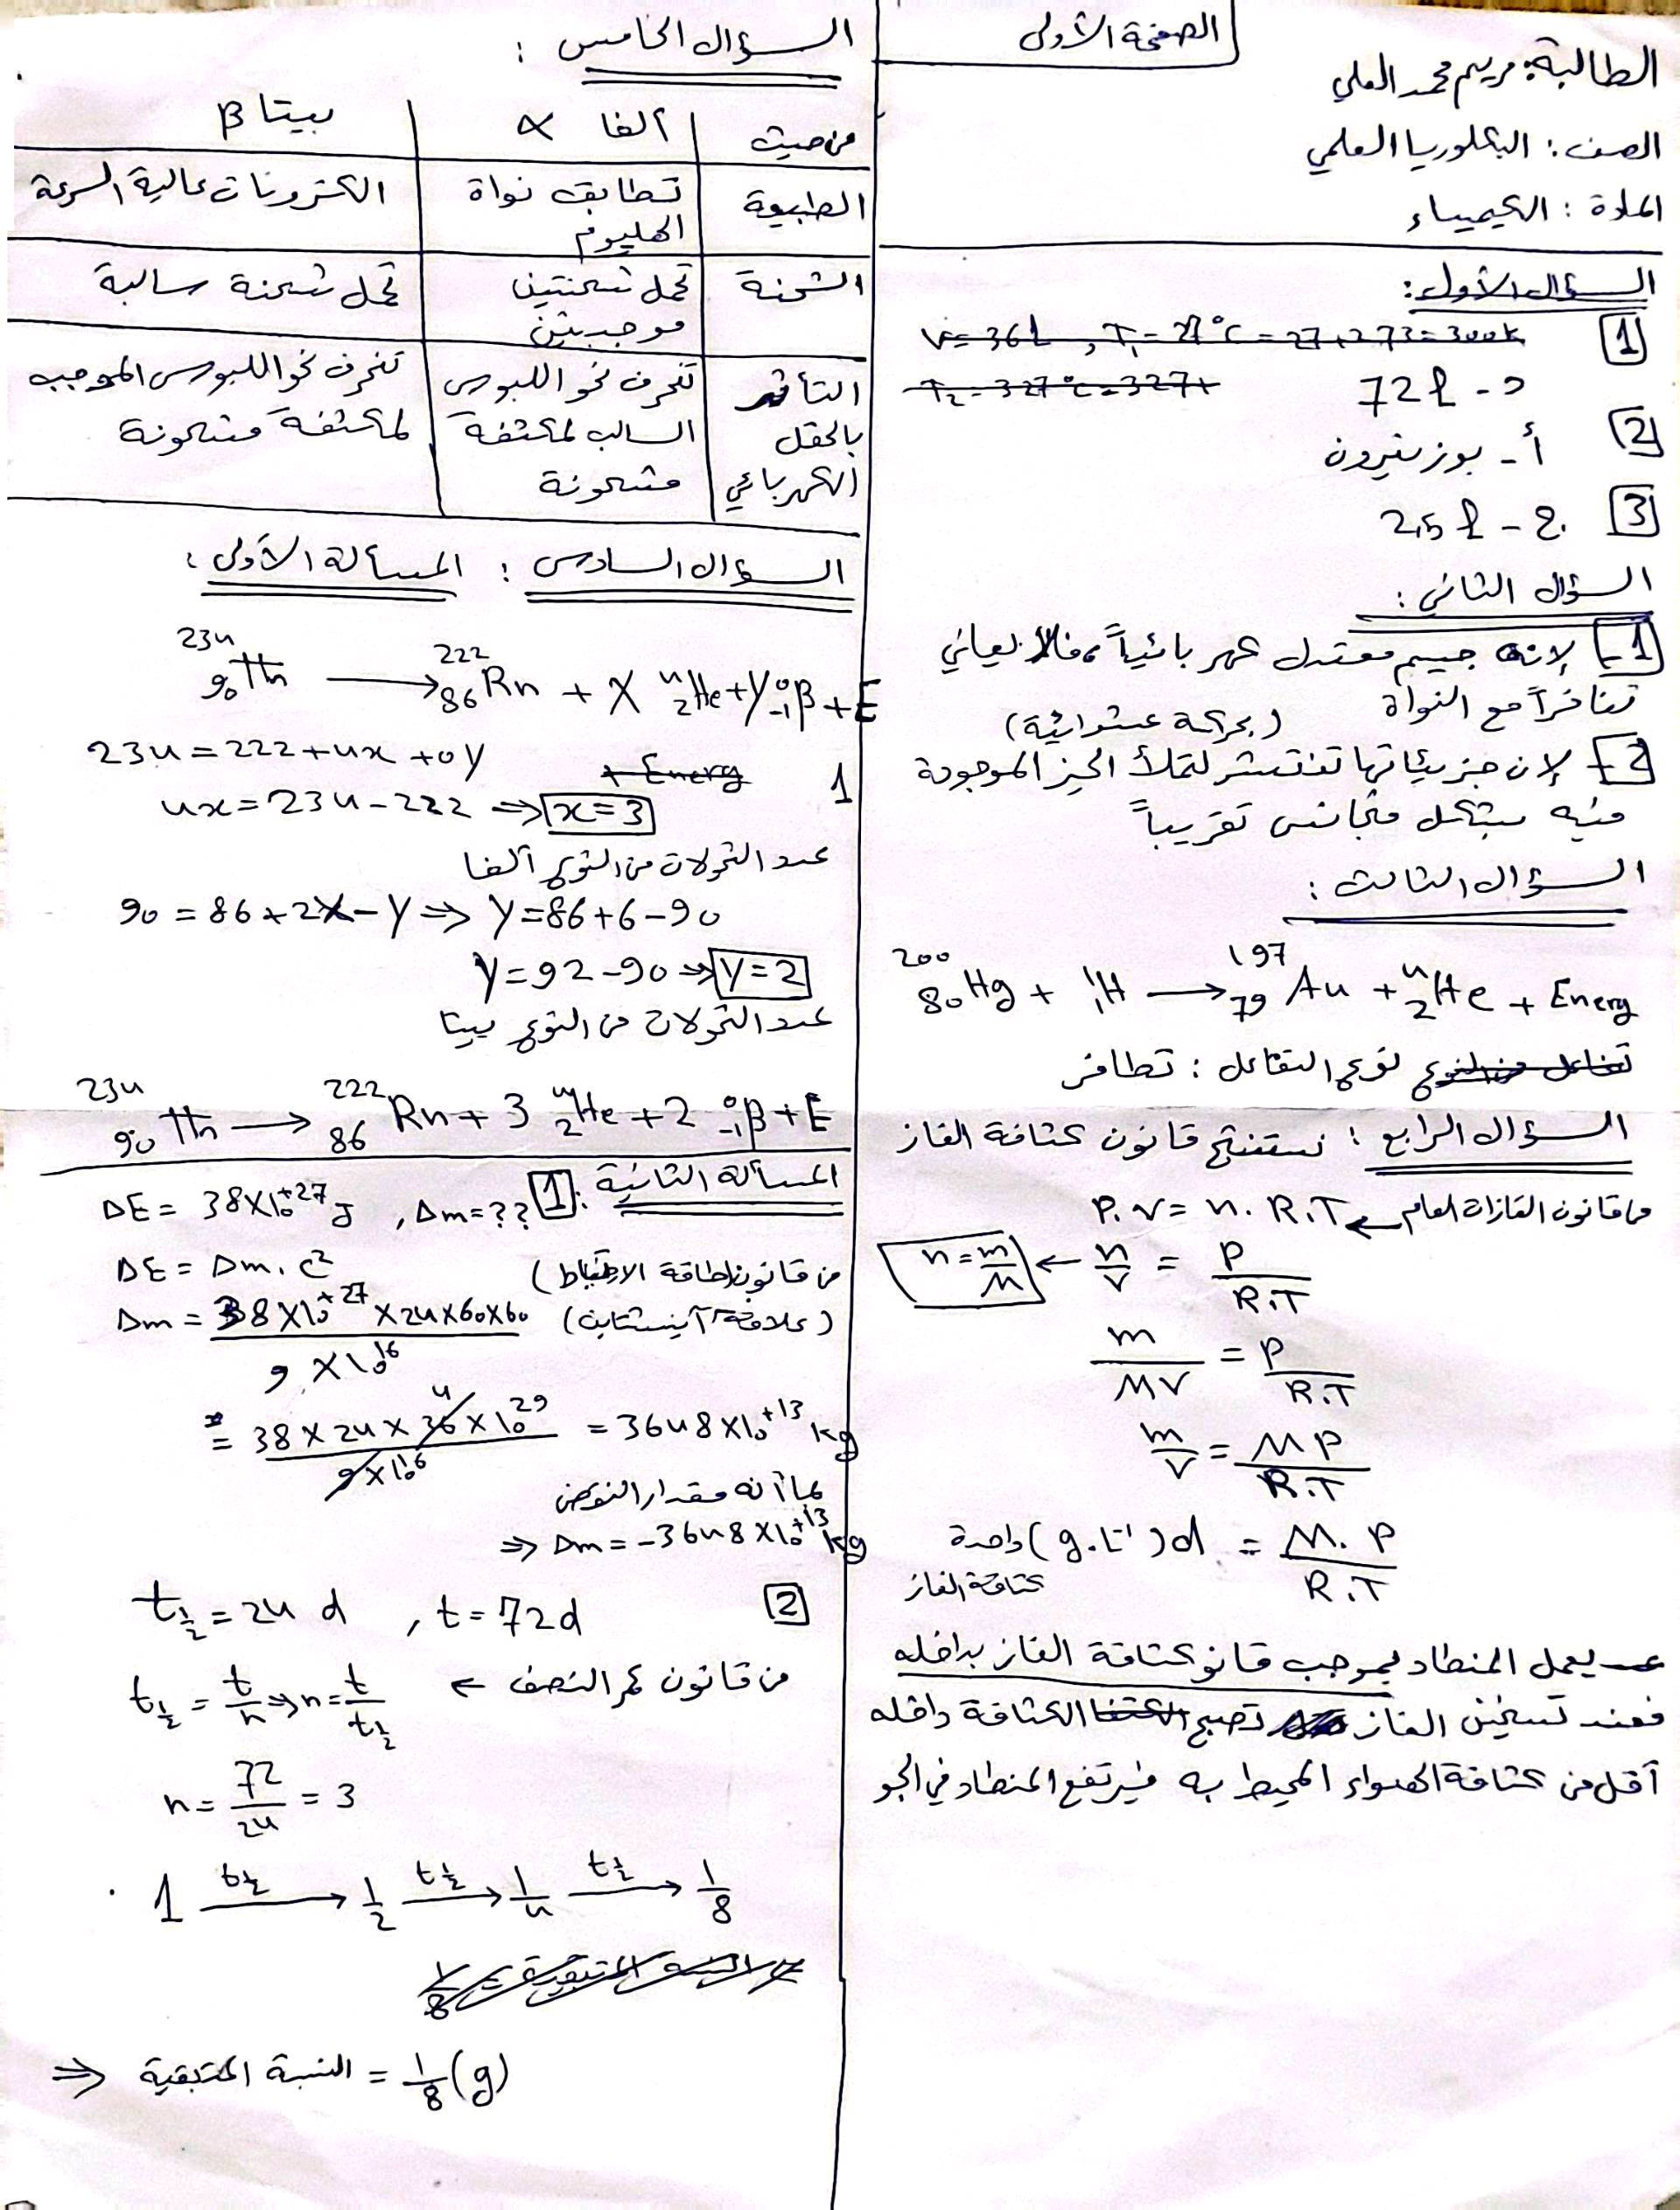 الصفحة الأولى
الطالبة: مريم محمد العلي
الصف: البكلوريا العلمي
المادة: الكيمياء
السؤال الأول:
1 V = 36 L , T₁ = 27°C = 27 + 273 = 300 K
T₂ = 327°C = 327 +
د - 72 L
2 أ - بوزيترون
3 ج - 2,5 L
السؤال الثاني:
1- لإنه جسيم معتدل كهربائياً، فلا يعاني
تنافراً مع النواة
(بحركة عشوائية)
2- لإن جزيئاتها تنتشر لتملأ الحيز الموجودة
فيه بشكل متجانس تقريباً
السؤال الثالث:
²⁰⁰₈₀Hg + ¹₁H → ¹⁹⁷₇₉Au + ⁴₂He + Energ
تفاعل من النوع نوع التفاعل: تطافر
السؤال الرابع: نستنتج قانون كثافة الغاز
من قانون الغازات العام ← P.V = n.R.T
n = m/M ← n/V = P/R.T
m/MV = P/R.T
m/V = MP/R.T
واحدة (g.L⁻¹) d = M.P/R.T
كثافة الغاز
يعمل المنطاد بموجب قانو كثافة الغاز بداخله
فعند تسخين الغاز تصبح الكثافة داخله
أقل من كثافة الهواء المحيط به فيرتفع المنطاد في الجو
السؤال الخامس:
من حيث | ألفا α | بيتا β
الطبيعة | تطابق نواة الهليوم | الكترونات عالية السرعة
الشحنة | تحمل شحنتين موجبتين | تحمل شحنة سالبة
التأثر بالحقل الكهربائي | تنحرف نحو اللبوس السالب لمكثفة مشحونة | تنحرف نحو اللبوس الموجب لمكثفة مشحونة
السؤال السادس: المسألة الأولى:
²³⁴₉₀Th → ²²²₈₆Rn + X ⁴₂He + Y ⁰₋₁β + E
+ Energ
234 = 222 + 4x + 0y
1
4x = 234 - 222 ⇒ x = 3
عدد التحولات من النوع ألفا
90 = 86 + 2X - Y ⇒ Y = 86 + 6 - 90
Y = 92 - 90 ⇒ Y = 2
عدد التحولات من النوع بيتا
²³⁴₉₀Th → ²²²₈₆Rn + 3 ⁴₂He + 2 ⁰₋₁β + E
المسألة الثانية: 1
ΔE = 38×10⁺²⁷ J , Δm = ??
ΔE = Δm.c² (من قانون طاقة الارتباط)
Δm = 38×10⁺²⁷ × 24×60×60 / 9×10¹⁶ (علاقة آينشتاين)
= 38 × 24 × 36 4 × 10²⁹ / 9×10¹⁶ = 3648×10⁺¹³ kg
بما أنه مقدار النقص
⇒ Δm = -3648×10⁺¹³ kg
2 t½ = 24 d , t = 72 d
من قانون عمر النصف ← t½ = t/n ⇒ n = t/t½
n = 72/24 = 3
1 —t½→ 1/2 —t½→ 1/4 —t½→ 1/8
⇒ النسبة المتبقية = 1/8 (g)